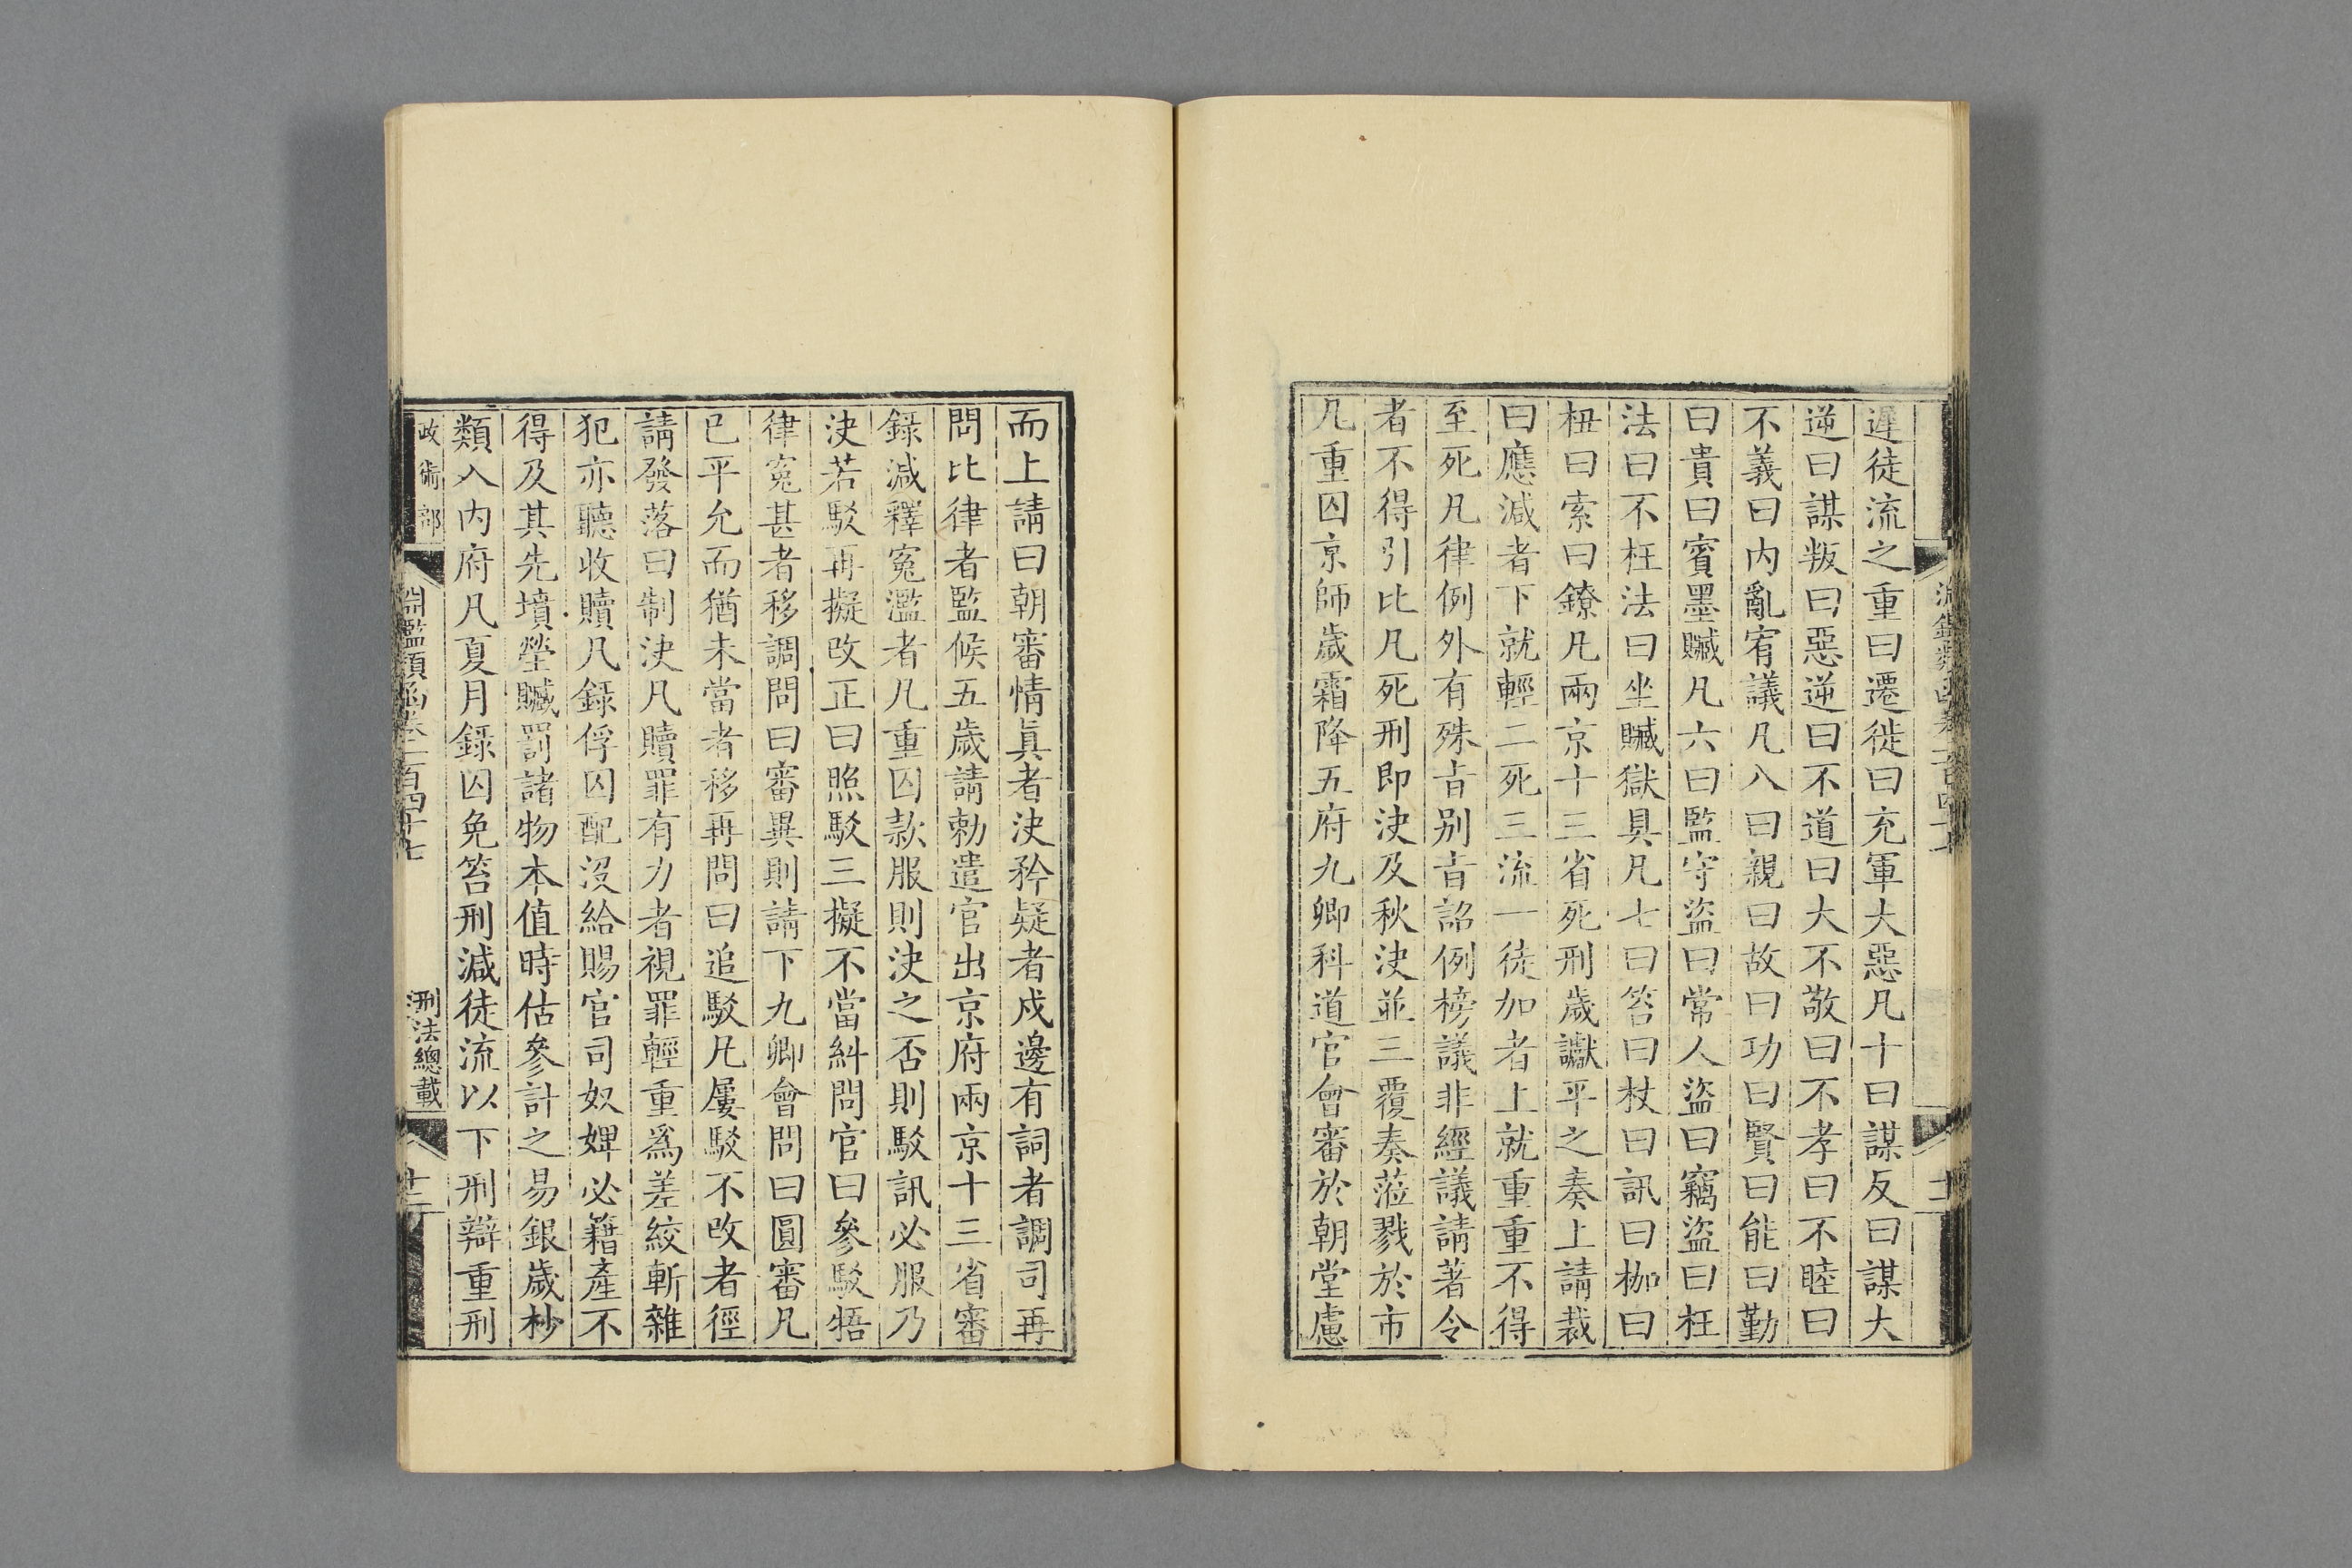 遲徒流之重曰遷徙曰充軍大惡凡十曰謀反曰謀大
逆曰謀叛曰惡逆曰不道曰大不敬曰不孝曰不睦曰
不義曰内亂宥議凡八曰親曰故曰功曰賢曰能曰勤
曰貴曰賓墨贓凡六曰監守盜曰常人盜曰竊盜曰枉
法曰不枉法曰坐贓獄具凡七曰笞曰杖曰訊曰枷曰
杻曰索曰鐐凡兩京十三省死刑歲讞平之奏上請裁
曰應減者下就輕二死三流一徒加者上就重重不得
至死凡律例外有殊旨别旨詔例榜議非經議請著令
者不得引比凡死刑即決及秋決並三覆奏蒞戮於市
凡重囚京師歲霜降五府九卿科道官會審於朝堂慮
而上請曰朝審情眞者決矜疑者戍邊有詞者調司再
問比律者監候五歲請勅遣官出京府兩京十三省審
錄減釋寃濫者凡重囚款服則決之否則駁訊必服乃
決若駁再擬改正曰照駁三擬不當糾問官曰參駁牾
律寃甚者移調問曰審異則請下九卿會問曰圓審凡
已平允而猶未當者移再問曰追駁凡屢駁不改者徑
請發落曰制決凡贖罪有力者視罪輕重爲差絞斬雜
犯亦聽收贖凡錄俘囚配沒給賜官司奴婢必籍產不
得及其先墳塋贓罰諸物本值時估參計之易銀歲杪
類入内府凡夏月錄囚免笞刑減徒流以下刑辯重刑
政術部
淵鑑類函卷一百四十七
刑法總載
十二